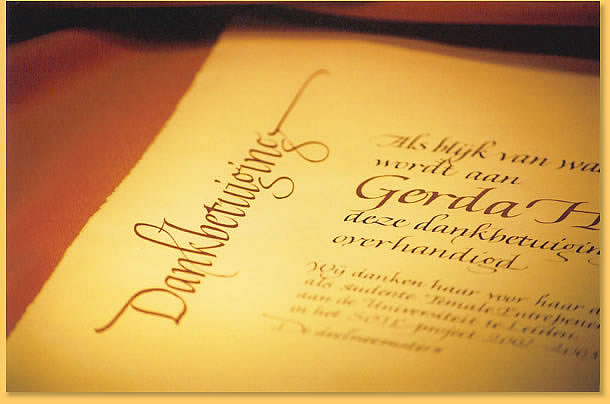 Dankbetuiging
Als blijk van
wordt aan
Gerda H
deze dankbetuiging
overhandigd
Wij danken haar voor haar
als studente Female Entrepener
aan de Universiteit te Leiden
in het project 2002 2003
Deelneemsters